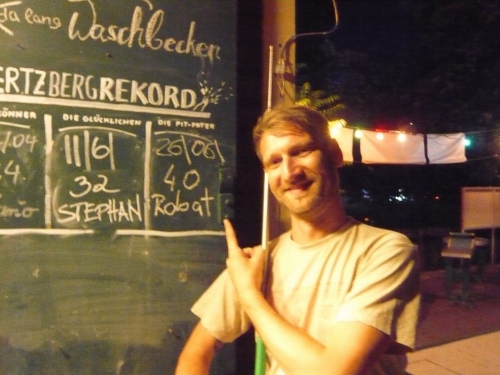 Ja lang Waschbecken
ERTZBERGREKORD
ÖNNER DIE GLÜCKLICHEN DIE PIT-PATER
/04 11/6/ 26/06/
4. 32 40
STEPHAN Robat